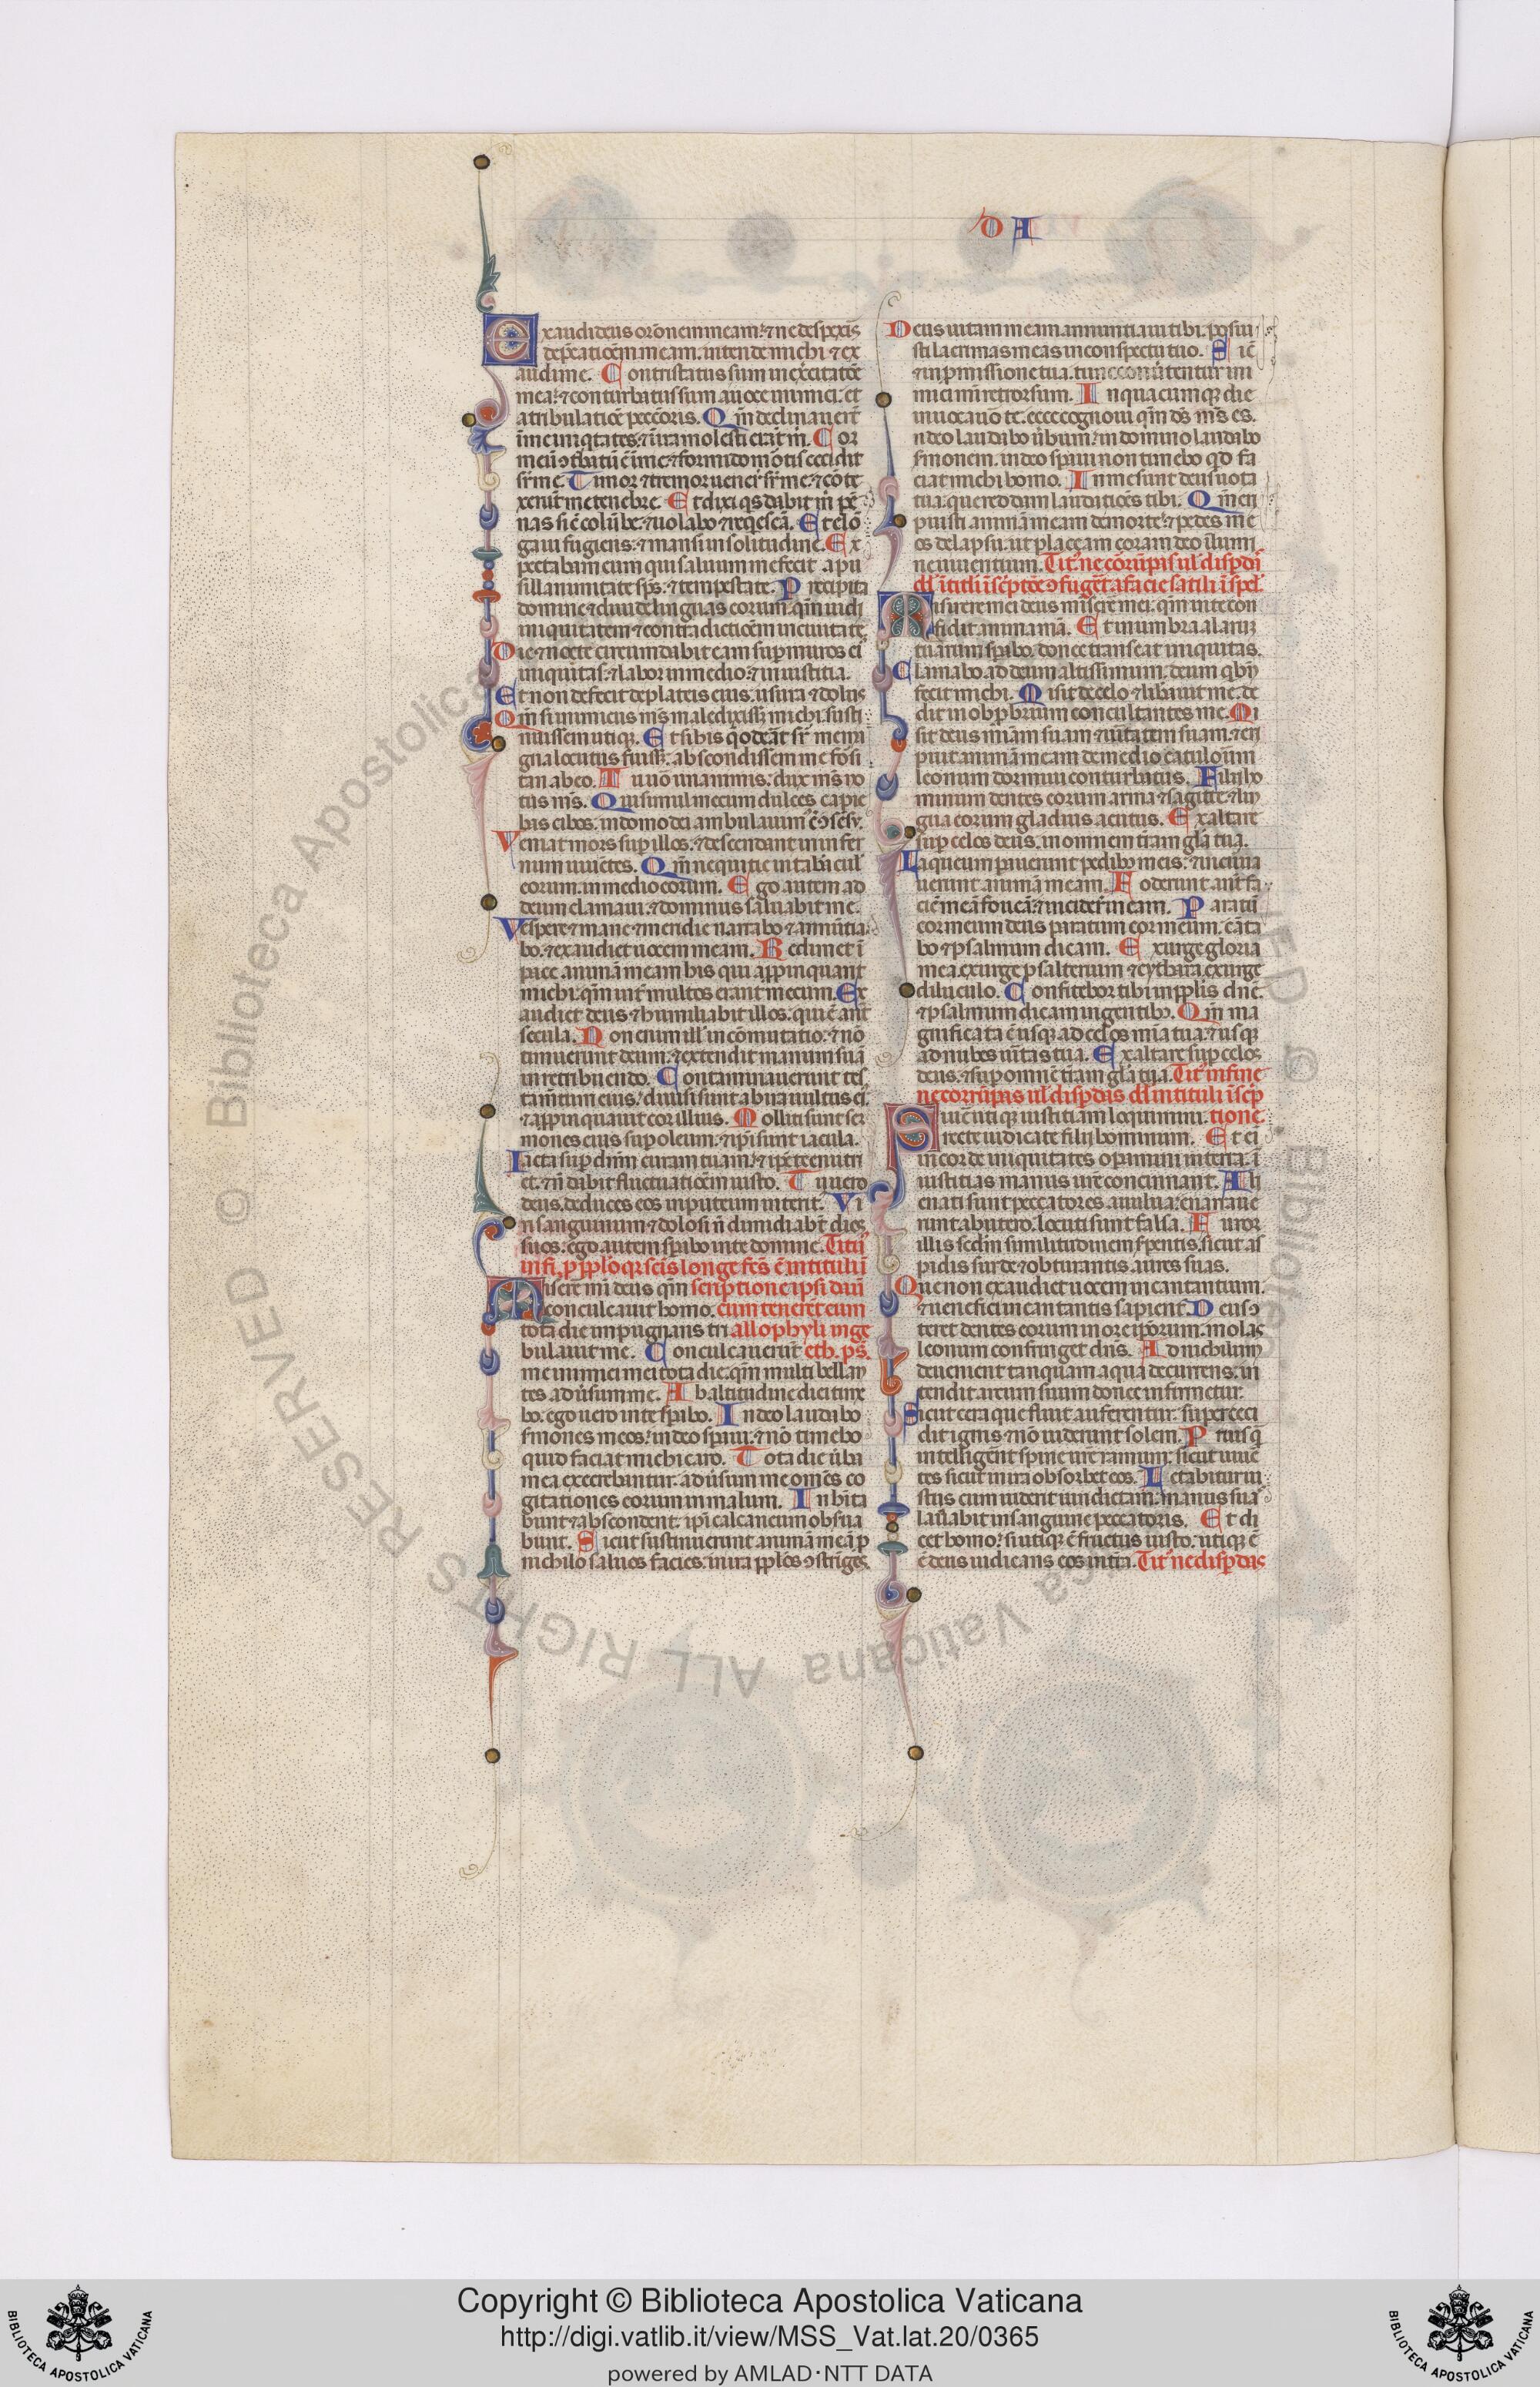 D A
Exaudi deus orōnem meam: ⁊ ne despexīs
dep̄catiōēm meam. intende michi ⁊ ex
audi me. Contristatus sum in ex̄citatōe
mea: ⁊ conturbatus sum a uoce inimici. et
a tribulatiōe pecc̄oris. Qm̄ declinauerūt
ī me iniq̄tates: ⁊ ī ira molesti erāt m̄. Cor
meū ↄturbatū ē ī me: ⁊ formido mōtis cecidit
sr̄ me. Timor ⁊ tremor uener̄t sr̄ me: ⁊ cōte
xerūt me tenebre. Et dixi q̄s dabit m̄ pē
nas sic̄ colūbe: ⁊ uolabo ⁊ req̄escā. Et elō
gaui fugiens: ⁊ mansi in solitudine. Ex
pectabam eum qui saluum me fecit a pu
sillanimitate sps̄: ⁊ tempestate. Precipita
domine ⁊ diuide linguas eorum: qm̄ uidi
iniquitatem ⁊ contradictiōēm in ciuitate
Die ⁊ nocte circumdabit eam sup̱ muros ei᷒
iniquitas: ⁊ labor in medio: ⁊ iniustitia.
Et non defecit de plateis eius: usura ⁊ dolus
Qm̄ si inimicus ms̄ maledixiss; michi: susti
nuissem utiq̨. Et si his q̄ oderāt sr̄ me ma
gna locutus fuiss;: abscondissem me forsi
tan ab eo. Tu uō unanimis: dux ms̄ no
tus ms̄. Qui simul mecum dulces capie
bas cibos: in domo dei ambulauim᷒ cū ↄsēsu.
Veniat mors sup̱ illos: ⁊ descendant in infer
num uiuētes. Qm̄ nequitie in tabn̄acul̄
eorum: in medio eorum. Ego autem ad
deum clamaui: ⁊ dominus saluabit me.
Vespere ⁊ mane ⁊ meridie narrabo ⁊ annūtia
bo: ⁊ exaudiet uocem meam. Redimet ī
pace animā meam ab his qui app̱inquant
michi: qm̄ int̄ multos erant mecum. Ex
audiet deus ⁊ humiliabit illos: qui ē ant̄
secula. Non enim ill̄ in cōmutatio: ⁊ nō
timuerunt deum: ⁊ extendit manum suā
in retribuendo. Contaminauerunt tes
tam̄tum eius: diuisi sunt ab ira uultus ei᷒
⁊ app̱inquauit cor illius. Molliti sunt ser
mones eius sup̱ oleum: ⁊ ip̄i sunt iacula.
Iacta sup̱ dn̄m curam tuam: ⁊ ip̄e te enutri
et: ⁊ n̄ dabit fluctuatiōēm iusto. Tu uero
deus. deduces eos in puteum interit᷒. Vi
ri sanguinum ⁊ dolosi n̄ dimidiabt̄ dies
suos: ego autem sp̱abo in te domine. Titu᷒
in fi. p̱ pp̱lo q̱ a scīs longe fcs̄ ē in tituli ī
Miserere mī deus qm̄ scriptione ipsi dauī
conculcauit homo: cum tenerēt eum
tota die impugnans tri allophyli in ge
bulauit me. Conculcauerūt eth. ps̄.
me inimici mei tota die: qm̄ multi bellan
tes aduersum me. Ab altitudine diei time
bo: ego uero in te sp̱abo. In deo laudabo
sr̄mones meos: in deo sp̱aui: ⁊ nō timebo
quid faciat michi caro. Tota die ūba
mea execrebantur: adūsum me om̄es co
gitationes eorum in malum. Inhīta
bunt ⁊ abscondent: ip̄i calcaneum obs̄ua
bunt. Sicut sustinuerunt animā meā p̱
nichilo saluos facies: in ira pp̱los ↄstringes
Deus uitam meam annuntiaui tibi: posui
sti lacrimas meas in conspectu tuo. Sic̄
⁊ in p̱missione tua: tunc cōuertentur ini
mici mī retrorsum. In quacumque die
inuocauō te: ecce cognoui qm̄ ds̄ ms̄ es.
In deo laudabo ūbum: in domino laudabo
sr̄monem: in deo sp̱aui non timebo q̱d fa
ciat michi homo. In me sunt deus uota
tua: que reddam laudatiōēs tibi. Qm̄ eri
puisti animā meam de morte: ⁊ pedes me
os de lapsu: ut placeam coram deo ī lumi
ne uiuentium. Tit᷒ ne corūpas ul̄ disp̱dī
dd̄ ī titl̄i īsc̄ptōe ↄ fuger̄t a facie saūl ī spel᷒
Miserere mei deus miserere mei: qm̄ in te con
fidit anima mā. Et in umbra alarum
tuarum sp̱abo: donec transeat iniquitas.
Clamabo ad deum altissimum: deum q̱ bn̄
fecit michi. Misit de celo ⁊ lib̄auit me: de
dit in obp̱brium conculcantes me. Mi
sit deus mīam suam ⁊ uītatem suam: ⁊ eri
puit animā meam de medio catuloꝝ
leonum dormiui conturbatus. Filii ho
minum dentes eorum arma ⁊ sagitte: ⁊ lin
gua eorum gladius acutus. Exaltare
sup̱ celos deus: in omnem tr̄am gl̄a tua.
Laqueum parauerunt pedibꝫ meis: ⁊ incurua
uerunt animā meam. Foderunt ant̄ fa
ciē meā foueā: ⁊ incider̄t in eam. Paratū
cor meum deus paratum cor meum: cāta
bo ⁊ psalmum dicam. Exurge gloria
mea. exurge psalterium ⁊ cythara: exurgā
diluculo. Confitebor tibi in pp̱lis dn̄e:
⁊ psalmum dicam in gentibꝫ. Qm̄ ma
gnificata ē usq̨ ad celos mīa tua: ⁊ usq̨
ad nubes uītas tua. Exaltare sup̱ celos
deus: ⁊ sup̱ omnē tr̄am gl̄a tua. Tit᷒ in fine
ne corrūpas ul̄ disp̱das dd̄ in tituli īsc̄p
Si uere utiq̨ iustitiam loquimini: tione.
recte iudicate filij hominum. Et eī
in corde iniquitates opamini in terra: ī
iustitias manus ur̄e concinnant. Ali
enati sunt peccatores a uulua: erraue
runt ab utero: locuti sunt falsa. Furor
illis scdm̄ similitudinem sr̄pentis: sicut as
pidis surde ⁊ obturantis aures suas.
Que non exaudiet uocem incantantium:
⁊ uenefici incantantis sapient᷒. Deus ↄ
teret dentes eorum in ore ip̄orum: molas
leonum confringet dns̄. Ad nichilum
deuenient tanquam aqua decurrens: in
tendit arcum suum donec infirmetur.
Sicut cera que fluit auferentur: supercec
idit ignis ⁊ nō uiderunt solem. Priusq̄
intelligerēt spine ur̄e ramnum: sicut uiuē
tes sicut in ira obsorbet eos. Letabitur iu
stus cum uiderit uindictam: manus suas
lauabit in sanguine peccatoris. Et di
cet homo: si utiq̨ ē fructus iusto: utiq̨ ē
ē deus iudicans eos in tr̄a. Tit᷒ ne disp̱das
© Biblioteca Apostolica Vaticana ALL RIGHTS RESERVED
Copyright © Biblioteca Apostolica Vaticana
http://digi.vatlib.it/view/MSS_Vat.lat.20/0365
powered by AMLAD·NTT DATA
BIBLIOTECA APOSTOLICA VATICANA
BIBLIOTECA APOSTOLICA VATICANA